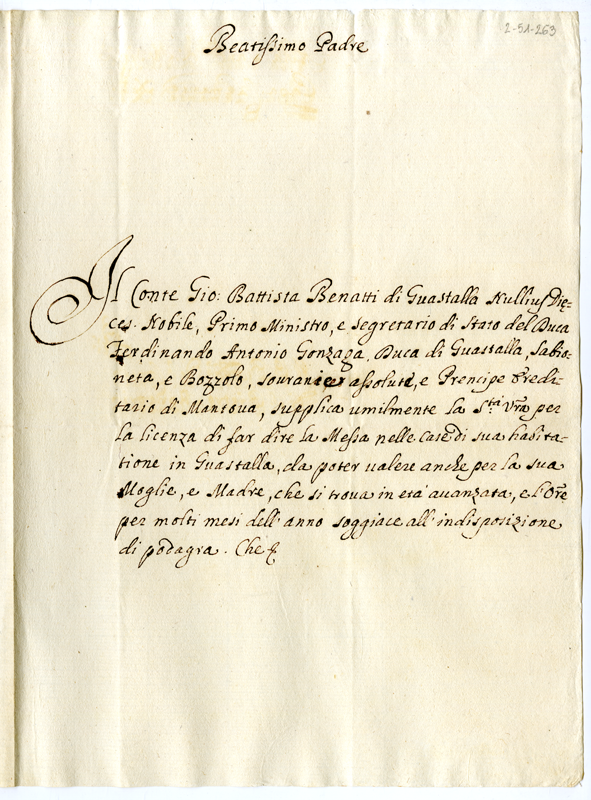 2-51-263
Beatissimo Padre
Il Conte Gio: Battista Benatti di Guastalla Nullius Diȩ=
ces. Nobile, Primo Ministro, e segretario di Stato del Duca
Ferdinando Antonio Gonzaga, Duca di Guastalla, Sabio=
neta, e Bozzolo, assoluti, e Prencipe Eredi=
tario di Mantova, supplica umilmente la S.tà Vrã per
la licenza di far dire la Messa nelle Case di sua habita=
tione in Guastalla, da poter valere anche per la sua
Moglie, e Madre, che si trova in età avanzata, e l'Orẽ
per molti mesi dell'anno soggiace all'indisposizione
di podagra. Che